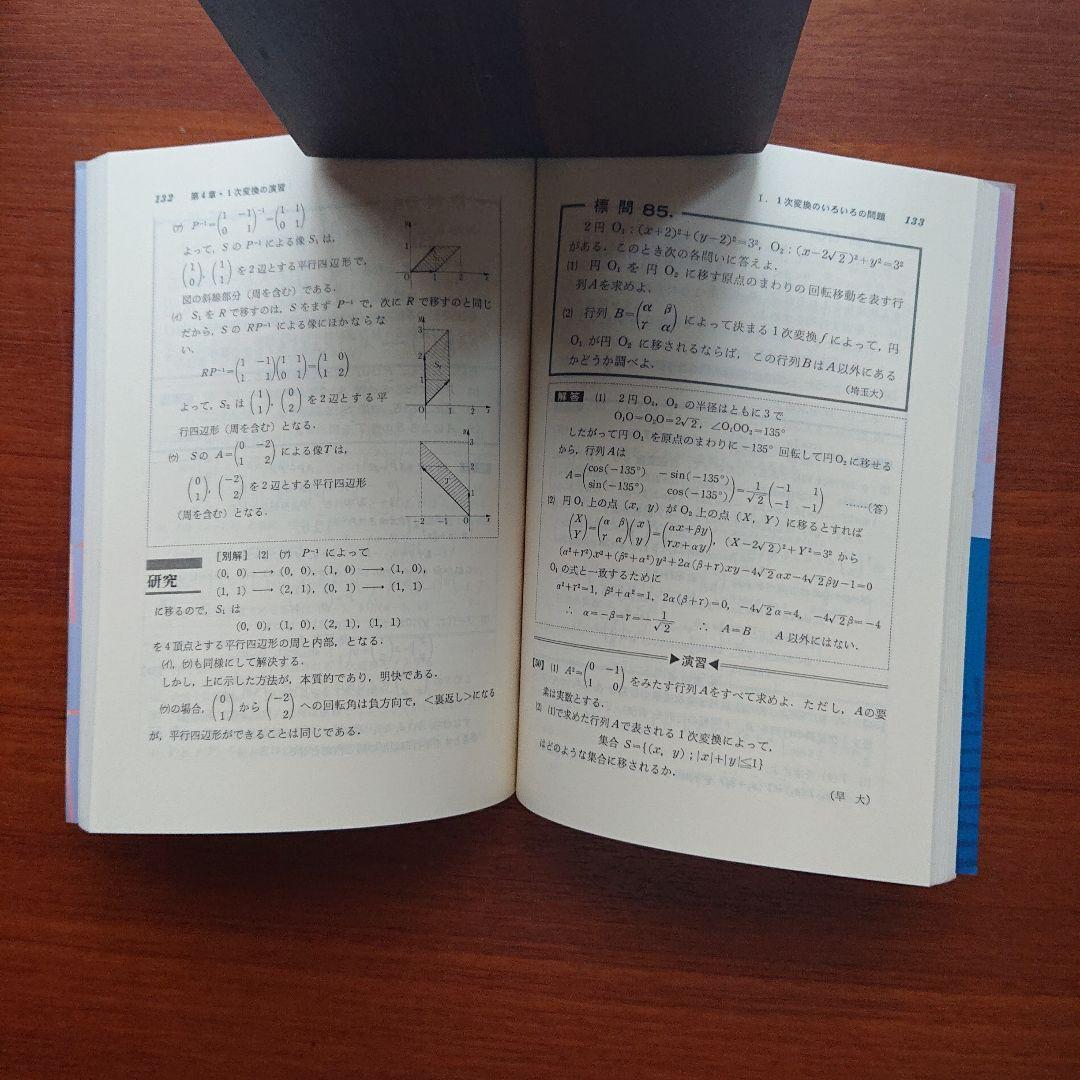 132 第4章・1次変換の演習
(ア) P⁻¹=(1 −1; 0 1)⁻¹=(1 1; 0 1)
よって，SのP⁻¹による像S₁は，
(1; 0), (1; 1)を2辺とする平行四辺形で，
図の斜線部分（周を含む）である．
(イ) S₁をRで移すのは，SをまずP⁻¹で，次にRで移すのと同じ
だから，SのRP⁻¹による像にほかならな
い，
RP⁻¹=(1 −1; 1 1)(1 1; 0 1)=(1 0; 1 2)
よって，S₂は(1; 1), (0; 2)を2辺とする平
行四辺形（周を含む）となる．
(ウ) SのA=(0 −2; 1 2)による像Tは，
(0; 1), (−2; 2)を2辺とする平行四辺形
（周を含む）となる．
研究
［別解］ (2) (ア) P⁻¹によって
(0, 0) ⟶ (0, 0), (1, 0) ⟶ (1, 0),
(1, 1) ⟶ (2, 1), (0, 1) ⟶ (1, 1)
に移るので，S₁は
(0, 0), (1, 0), (2, 1), (1, 1)
を4頂点とする平行四辺形の周と内部，となる．
(イ)，(ウ)も同様にして解決する．
しかし，上に示した方法が，本質的であり，明快である．
(ウ)の場合，(0; 1)から(−2; 2)への回転角は負方向で，＜裏返し＞になる
が，平行四辺形ができることは同じである．
Ⅰ．1次変換のいろいろの問題 133
標問 85.
2円 O₁：(x+2)²+(y−2)²=3²，O₂：(x−2√2)²+y²=3²
がある．このとき次の各問いに答えよ．
(1) 円O₁を円O₂に移す原点のまわりの回転移動を表す行
列Aを求めよ．
(2) 行列 B=(α β; γ α)によって決まる1次変換fによって，円
O₁が円O₂に移されるならば，この行列BはA以外にある
かどうか調べよ．
（埼玉大）
解答 (1) 2円O₁，O₂の半径はともに3で
O₁O=O₂O=2√2，∠O₁OO₂=135°
したがって円O₁を原点のまわりに−135°回転して円O₂に移せる
から，行列Aは
A=(cos(−135°) −sin(−135°); sin(−135°) cos(−135°))=1/√2(−1 1; −1 −1) ……(答)
(2) 円O₁上の点(x, y)がO₂上の点(X, Y)に移るとすれば
(X; Y)=(α β; γ α)(x; y)=(αx+βy; γx+αy), (X−2√2)²+Y²=3²から
(α²+γ²)x²+(β²+α²)y²+2α(β+γ)xy−4√2αx−4√2βy−1=0
O₁の式と一致するために
α²+γ²=1, β²+α²=1, 2α(β+γ)=0, −4√2α=4, −4√2β=−4
∴ α=−β=γ=−1/√2 ∴ A=B A以外にはない．
▶演習◀
【50】 (1) A²=(0 −1; 1 0)をみたす行列Aをすべて求めよ．ただし，Aの要
素は実数とする．
(2) (1)で求めた行列Aで表される1次変換によって，
集合 S={(x, y)；|x|+|y|≦1}
はどのような集合に移されるか．
（早 大）